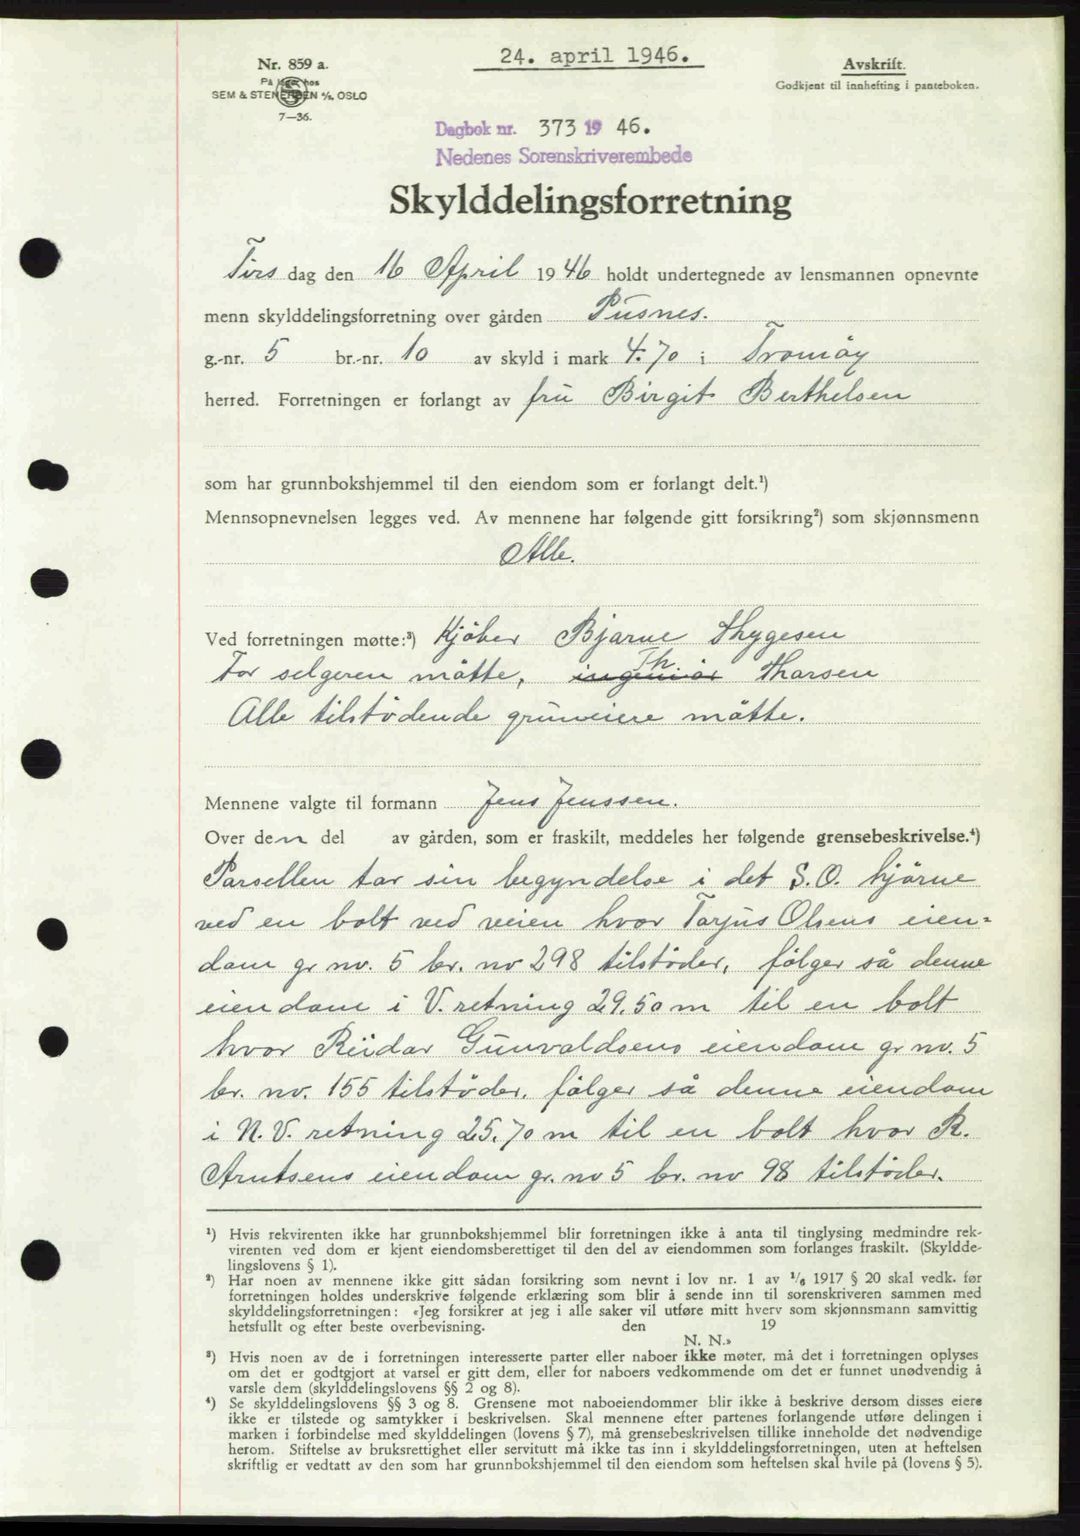 24. april 1946.
Nr. 859 a.
På lager hos
SEM & STENERSEN A/S, OSLO
7—36.
Avskrift.
Godkjent til innhefting i panteboken.
Dagbok nr. 373 19 46.
Nedenes Sorenskriverembede
Skylddelingsforretning
Tirs dag den 16 April 1946 holdt undertegnede av lensmannen opnevnte
menn skylddelingsforretning over gården Pusnes.
g.-nr. 5 br.-nr. 10 av skyld i mark 4.70 i Tromöy
herred. Forretningen er forlangt av fru Birgit Berthelsen
som har grunnbokshjemmel til den eiendom som er forlangt delt.¹)
Mennsopnevnelsen legges ved. Av mennene har følgende gitt forsikring²) som skjønnsmenn
Alle.
Ved forretningen møtte:³) Kjöber Bjarne Thygesen
For selgeren mötte, ingeniör Th. Tharsen
Alle tilstödende grunneiere mötte.
Mennene valgte til formann Jens Jenssen.
Over den del av gården, som er fraskilt, meddeles her følgende grensebeskrivelse.⁴)
Parsellen tar sin begyndelse i det S.O. hjörne
ved en bolt ved veien hvor Tarjus Olsens eien=
dom gr nr. 5 br. nr 298 tilstöder, fölger så denne
eiendom i V. retning 29.50 m til en bolt
hvor Reidar Gunvaldsens eiendom gr nr. 5
br. nr. 155 tilstöder, fölger så denne eiendom
i N.V. retning 25.70 m til en bolt hvor R.
Arntsens eiendom gr. nr 5 br. nr 98 tilstöder.
¹) Hvis rekvirenten ikke har grunnbokshjemmel blir forretningen ikke å anta til tinglysing medmindre rek-
virenten ved dom er kjent eiendomsberettiget til den del av eiendommen som forlanges fraskilt. (Skyldde-
lingslovens § 1).
²) Har noen av mennene ikke gitt sådan forsikring som nevnt i lov nr. 1 av 1/6 1917 § 20 skal vedk. før
forretningen holdes underskrive følgende erklæring som blir å sende inn til sorenskriveren sammen med
skylddelingsforretningen: «Jeg forsikrer at jeg i alle saker vil utføre mitt hverv som skjønnsmann samvittig
hetsfullt og efter beste overbevisning. den 19
N. N.»
³) Hvis noen av de i forretningen interesserte parter eller naboer ikke møter, må det i forretningen oplyses
om det er godtgjort at varsel er gitt dem, eller for naboers vedkommende om det er funnet unødvendig å
varsle dem (skylddelingslovens §§ 2 og 8).
⁴) Se skylddelingslovens §§ 3 og 8. Grensene mot naboeiendommer blir ikke å beskrive dersom disses eiere
ikke er tilstede og samtykker i beskrivelsen. Skal mennene efter partenes forlangende utføre delingen i
marken i forbindelse med skylddelingen (lovens § 7), må grensebeskrivelsen tillike inneholde det nødvendige
herom. Stiftelse av bruksrettighet eller servitutt må ikke tas inn i skylddelingsforretningen, uten at heftelsen
skriftlig er vedtatt av den som har grunnbokshjemmel til den eiendom som heftelsen skal hvile på (lovens § 5).